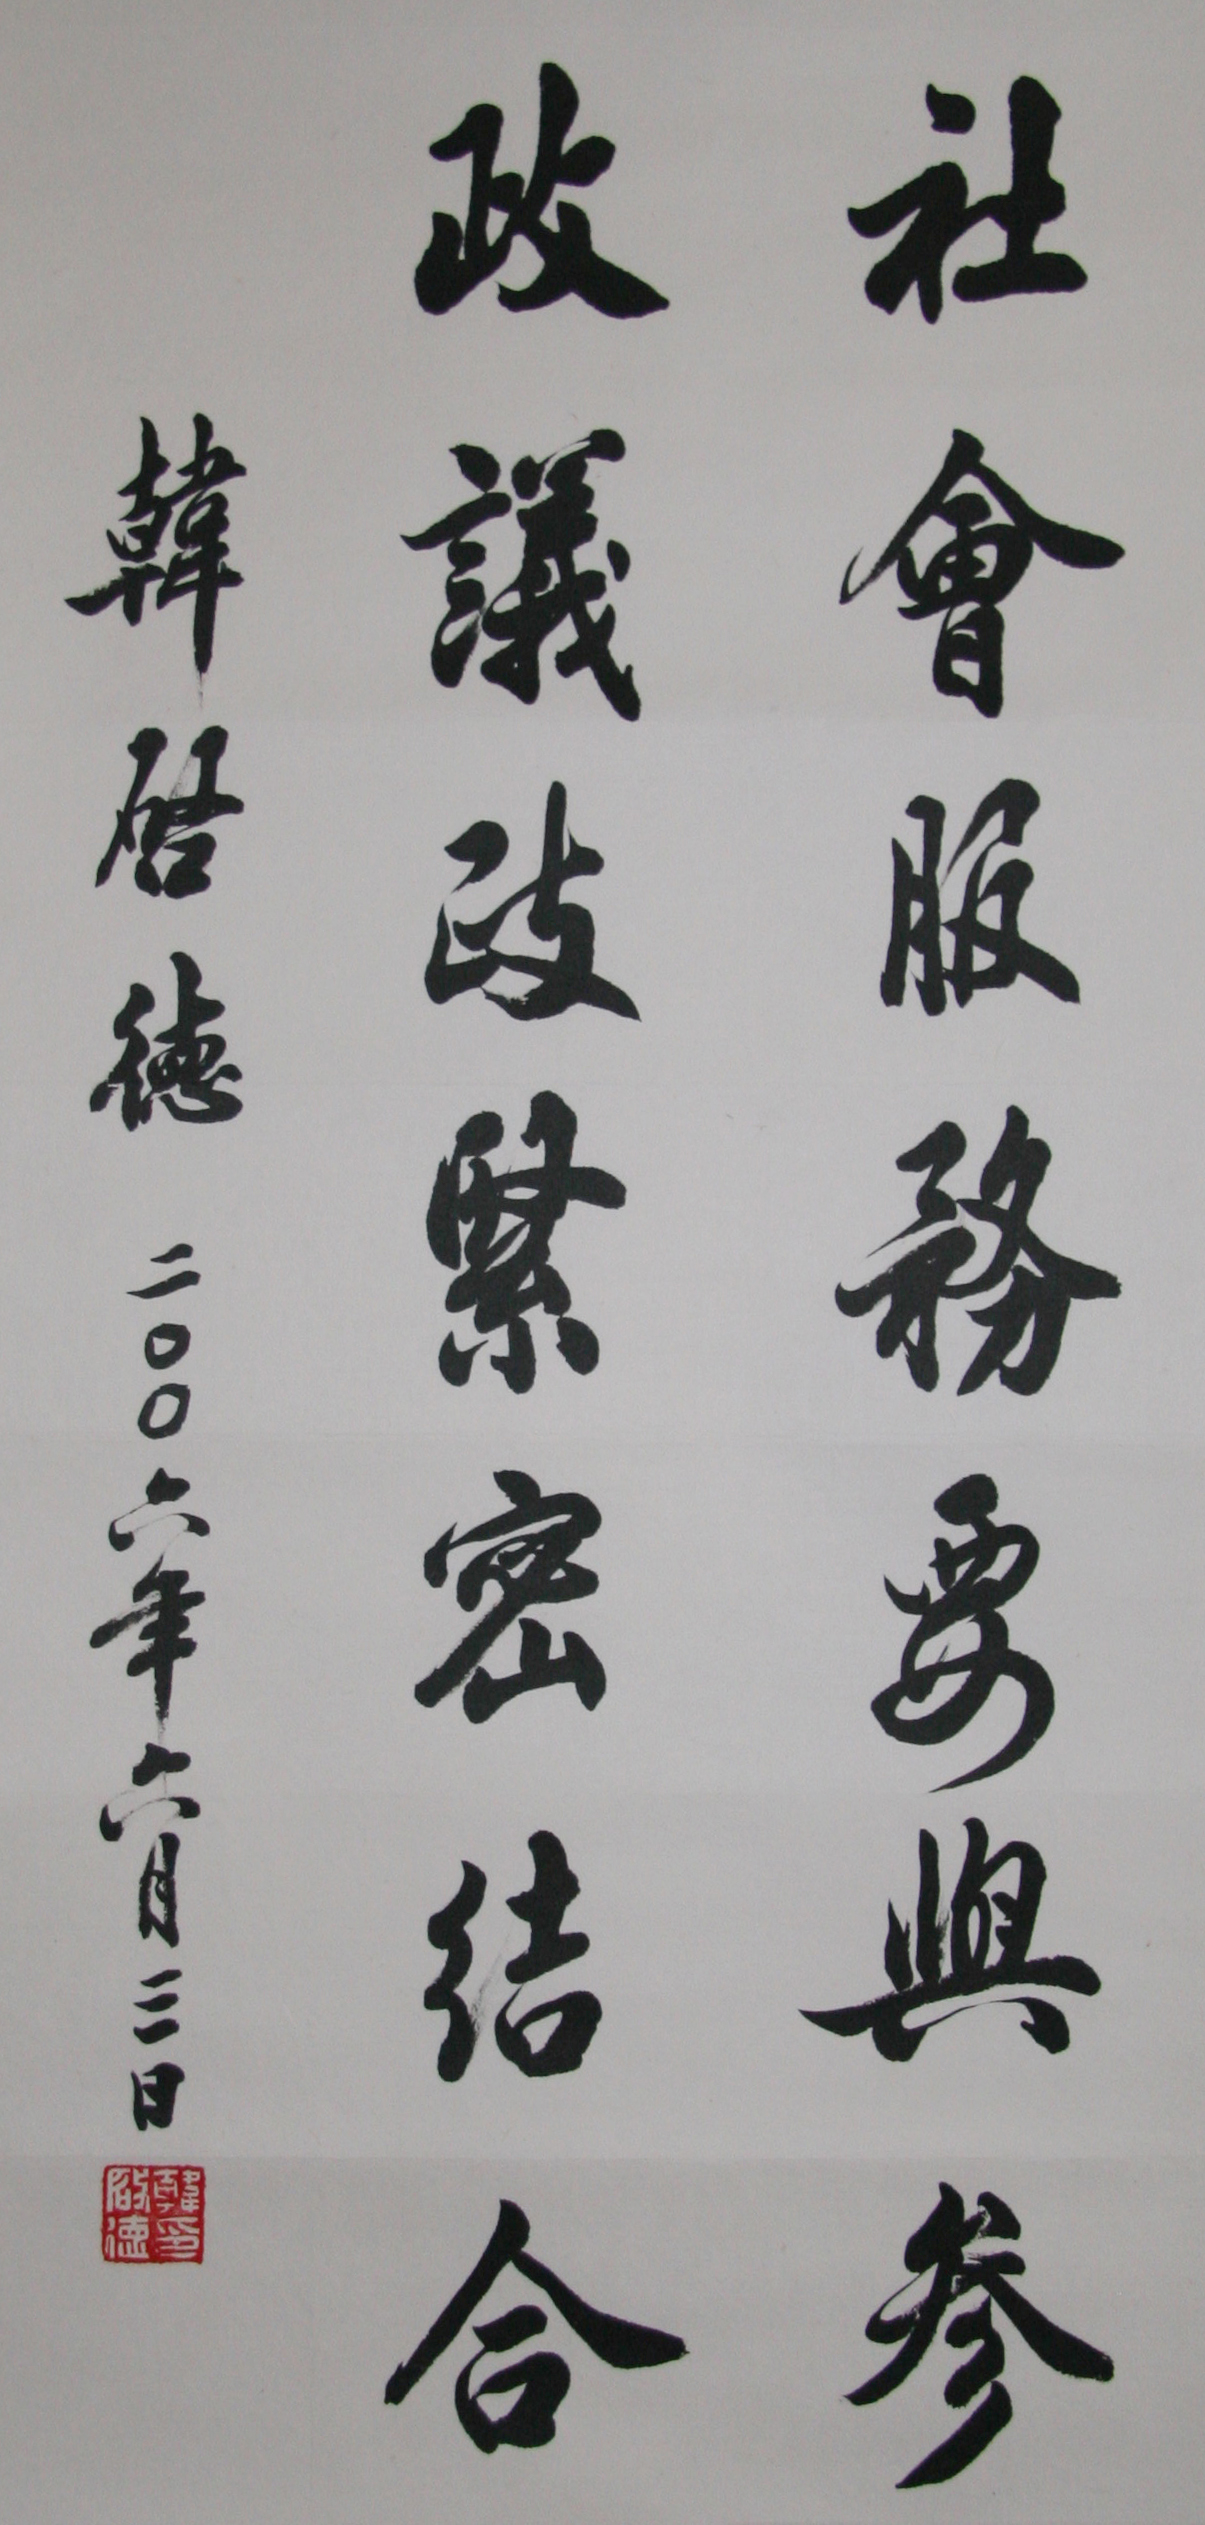 社會服務要與參
政議政緊密結合
韓啓德 二〇〇六年六月三日
韓啟德印